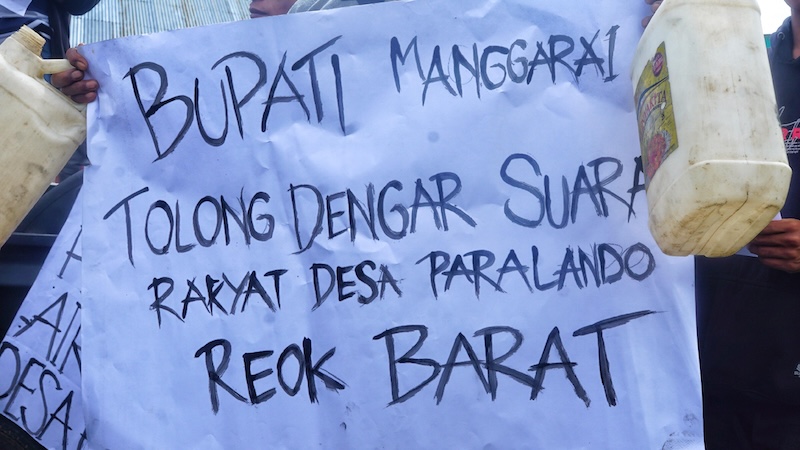 BUPATI MANGGARAI
TOLONG DENGAR SUARA
RAKYAT DESA PARALANDO
REOK BARAT
AIR
DESA